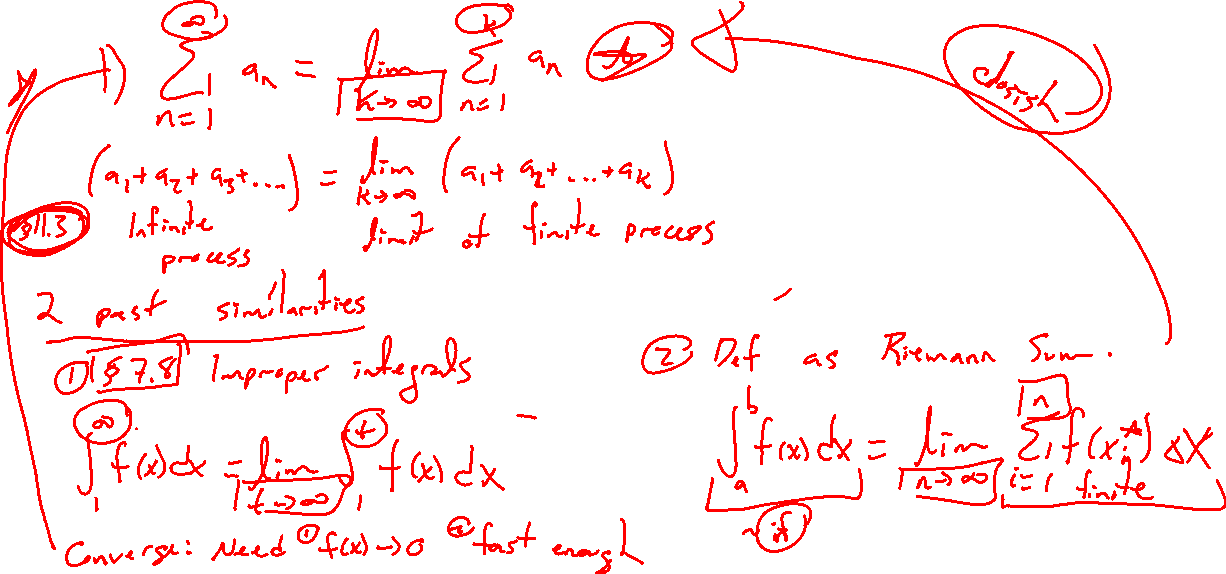 1) ∞∑n=1 a_n = lim k→∞ k∑n=1 a_n
closish
(a_1 + a_2 + a_3 + ....) = lim k→∞ (a_1 + a_2 + ... + a_k)
§11.3 Infinite process
limit of finite process
2 past similarities
① §7.8 Improper integrals
∫_1^∞ f(x) dx = lim t→∞ ∫_1^t f(x) dx
Converge: Need ① f(x) → 0 ② fast enough
② Def as Riemann Sum.
∫_a^b f(x) dx = lim n→∞ n∑i=1 f(x_i^*) ΔX
finite